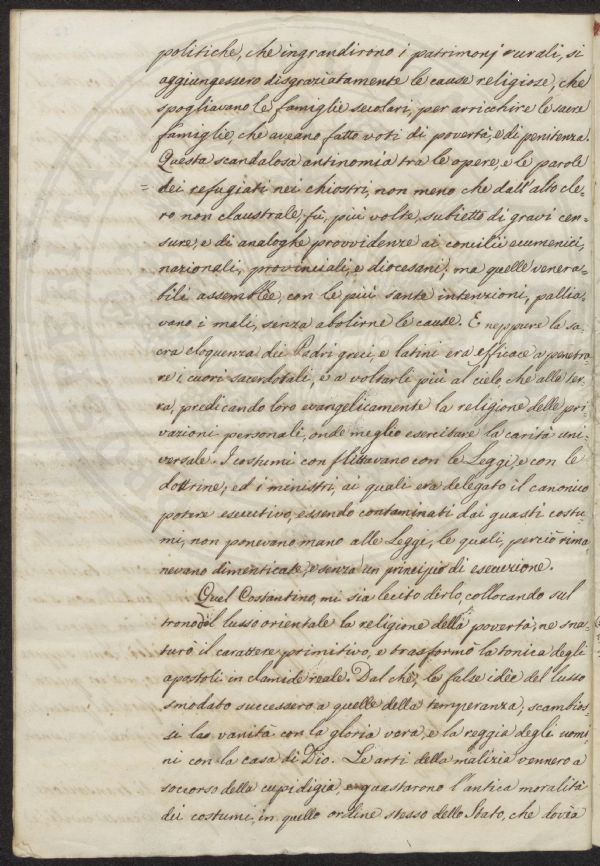 politiche, che ingrandirono i patrimonj rurali, si
aggiungessero disgraziatamente le cause religiose, che
spogliavano le famiglie secolari, per arricchire le sacre
famiglie, che aveano fatto voti di povertà, e di penitenza.
Questa scandalosa antinomia tra le opere, e le parole
dei refugiati nei chiostri, non meno che dall'alto cle=
ro non claustrale, fù, più volte, subietto di gravi cen=
sure, e di analoghe provvidenze ai concilii ecumenici,
nazionali, provinciali, e diocesani; ma quelle venera=
bili assemblèe, con le più sante intenzioni, pallia=
vano i mali, senza abolirne le cause. E neppure la sa=
cra eloquenza dei Padri greci, e latini era efficace a penetra=
re i cuori sacerdotali, e a voltarli più al Cielo, che alla ter=
ra, predicando loro evangelicamente la religione delle pri=
vazioni personali, onde meglio esercitare la carità uni=
versale. I costumi conflittavano con le Leggi, e con le
dottrine, ed i ministri, ai quali era delegato il canonico
potere esecutivo, essendo contaminati dai guasti costu=
mi, non ponevano mano alle Legge, le quali, perciò rima
nevano dimenticate, e senza un principio di esecuzione.
Quel Costantino, mi sia lecito dirlo, collocando sul
trono il lusso orientale la religione della povertà, ne sna=
turò il carattere primitivo, e trasformò la tonica degli
apostoli in clamide reale. Dal che, le false idèe del lusso
smodato successero a quelle della temperanza, scambios=
si la vanità con la gloria vera, e la reggia degli uomi=
ni con la casa di Dio. Le arti della malizia vennero a
soccorso della cupidigia, e guastarono l'antica moralità
dei costumi, in quello ordine stesso dello Stato, che dovèa